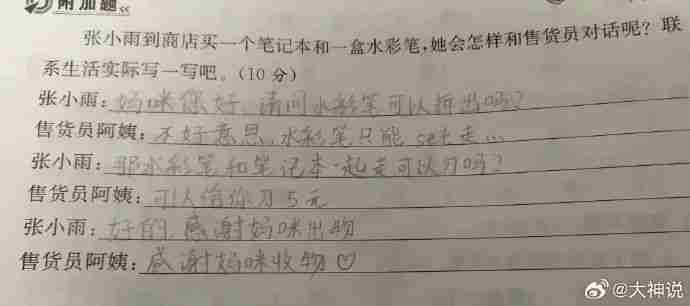 附加题
张小雨到商店买一个笔记本和一盒水彩笔,她会怎样和售货员对话呢?联
系生活实际写一写吧。(10分)
张小雨:妈咪你好,请问水彩笔可以拆出吗?
售货员阿姨:不好意思,水彩笔只能set走…
张小雨:那水彩笔和笔记本一起走可以刀吗?
售货员阿姨:可以给你刀5元
张小雨:好的,感谢妈咪出物
售货员阿姨:感谢妈咪收物♡
@大神说